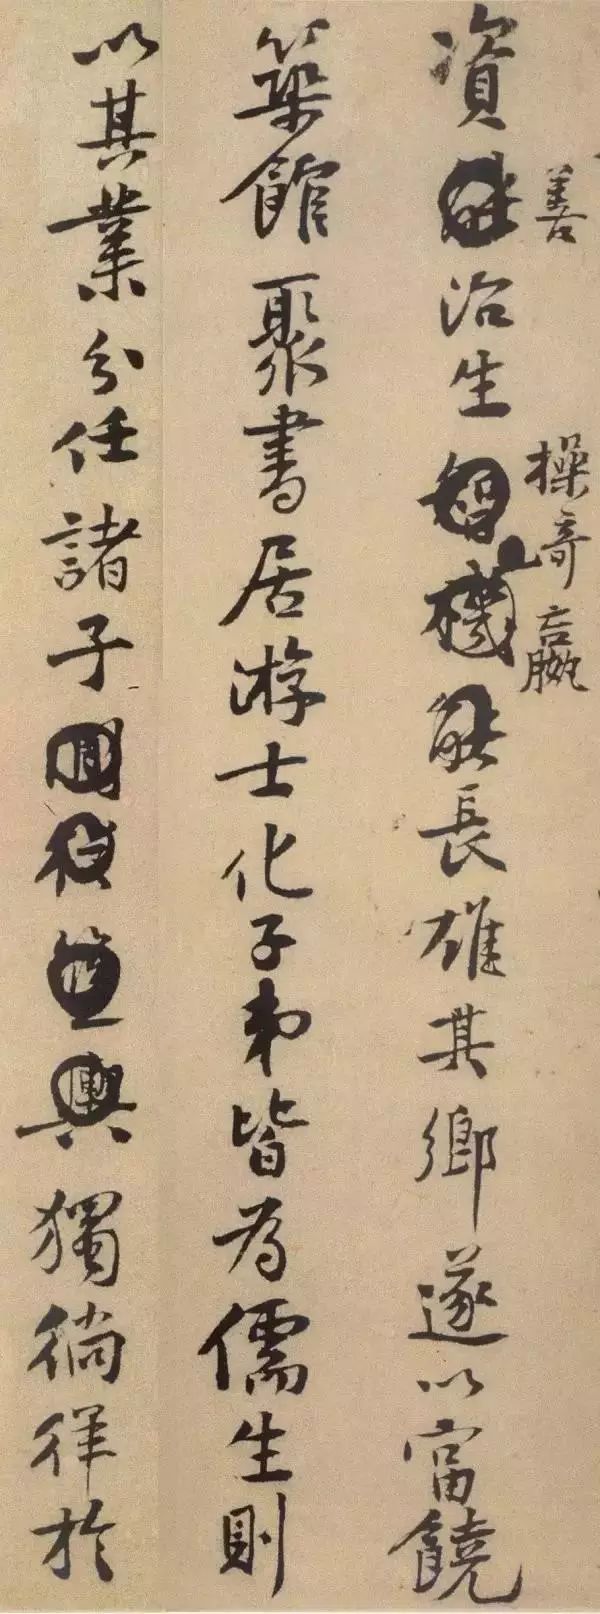 善 操奇嬴
資能治生智機能長雄其鄉遂以富饒
築館聚書居游士化子弟皆為儒生則
以其業分任諸子獨徜徉於